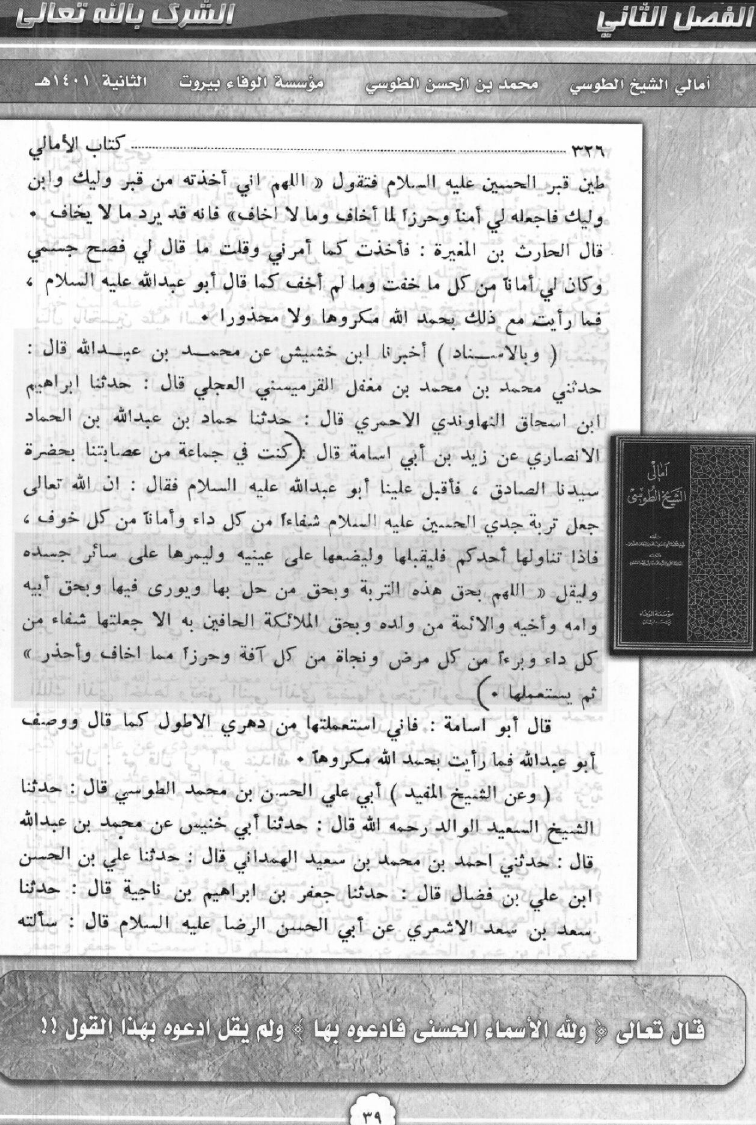 الفصل الثاني
الشرك بالله تعالى
أمالي الشيخ الطوسي محمد بن الحسن الطوسي مؤسسة الوفاء بيروت الثانية ١٤٠١هـ
٣٢٦ ........................ كتاب الأمالي
طين قبر الحسين عليه السلام فتقول « اللهم اني أخذته من قبر وليك وابن
وليك فاجعله لي أمناً وحرزاً لما أخاف وما لا اخاف» فانه قد يرد ما لا يخاف .
قال الحارث بن المغيرة : فأخذت كما أمرني وقلت ما قال لي فصح جسمي
وكان لي أماناً من كل ما خفت وما لم أخف كما قال أبو عبدالله عليه السلام ،
فما رأيت مع ذلك بحمد الله مكروها ولا محذورا .
( وبالاسناد ) أخبرنا ابن خشيش عن محمد بن عبدالله قال :
حدثني محمد بن محمد بن مغفل القرميسني العجلي قال : حدثنا ابراهيم
ابن اسحاق النهاوندي الاحمري قال : حدثنا حماد بن عبدالله بن الحماد
الانصاري عن زيد بن أبي اسامة قال : (كنت في جماعة من عصابتنا بحضرة
سيدنا الصادق ، فأقبل علينا أبو عبدالله عليه السلام فقال : ان الله تعالى
جعل تربة جدي الحسين عليه السلام شفاءاً من كل داء وأماناً من كل خوف ،
فاذا تناولها أحدكم فليقبلها وليضعها على عينيه وليمرها على سائر جسده
وليقل « اللهم بحق هذه التربة وبحق من حل بها وبورى فيها وبحق أبيه
وامه وأخيه والائمة من ولده وبحق الملائكة الحافين به الا جعلتها شفاء من
كل داء وبرءاً من كل مرض ونجاة من كل آفة وحرزاً مما اخاف وأحذر »
ثم يستعملها .)
قال أبو اسامة : فاني استعملتها من دهري الاطول كما قال ووصف
أبو عبدالله فما رأيت بحمد الله مكروهاً .
( وعن الشيخ المفيد ) أبي علي الحسن بن محمد الطوسي قال : حدثنا
الشيخ السعيد الوالد رحمه الله قال : حدثنا أبي خنيس عن محمد بن عبدالله
قال : حدثني احمد بن محمد بن سعيد الهمداني قال : حدثنا علي بن الحسن
ابن علي بن فضال قال : حدثنا جعفر بن ابراهيم بن ناجية قال : حدثنا
سعد بن سعد الاشعري عن أبي الحسن الرضا عليه السلام قال : سألته
أمالي
الشيخ الطوسي
قال تعالى ﴿ ولله الأسماء الحسنى فادعوه بها ﴾ ولم يقل ادعوه بهذا القول !!
٣٩